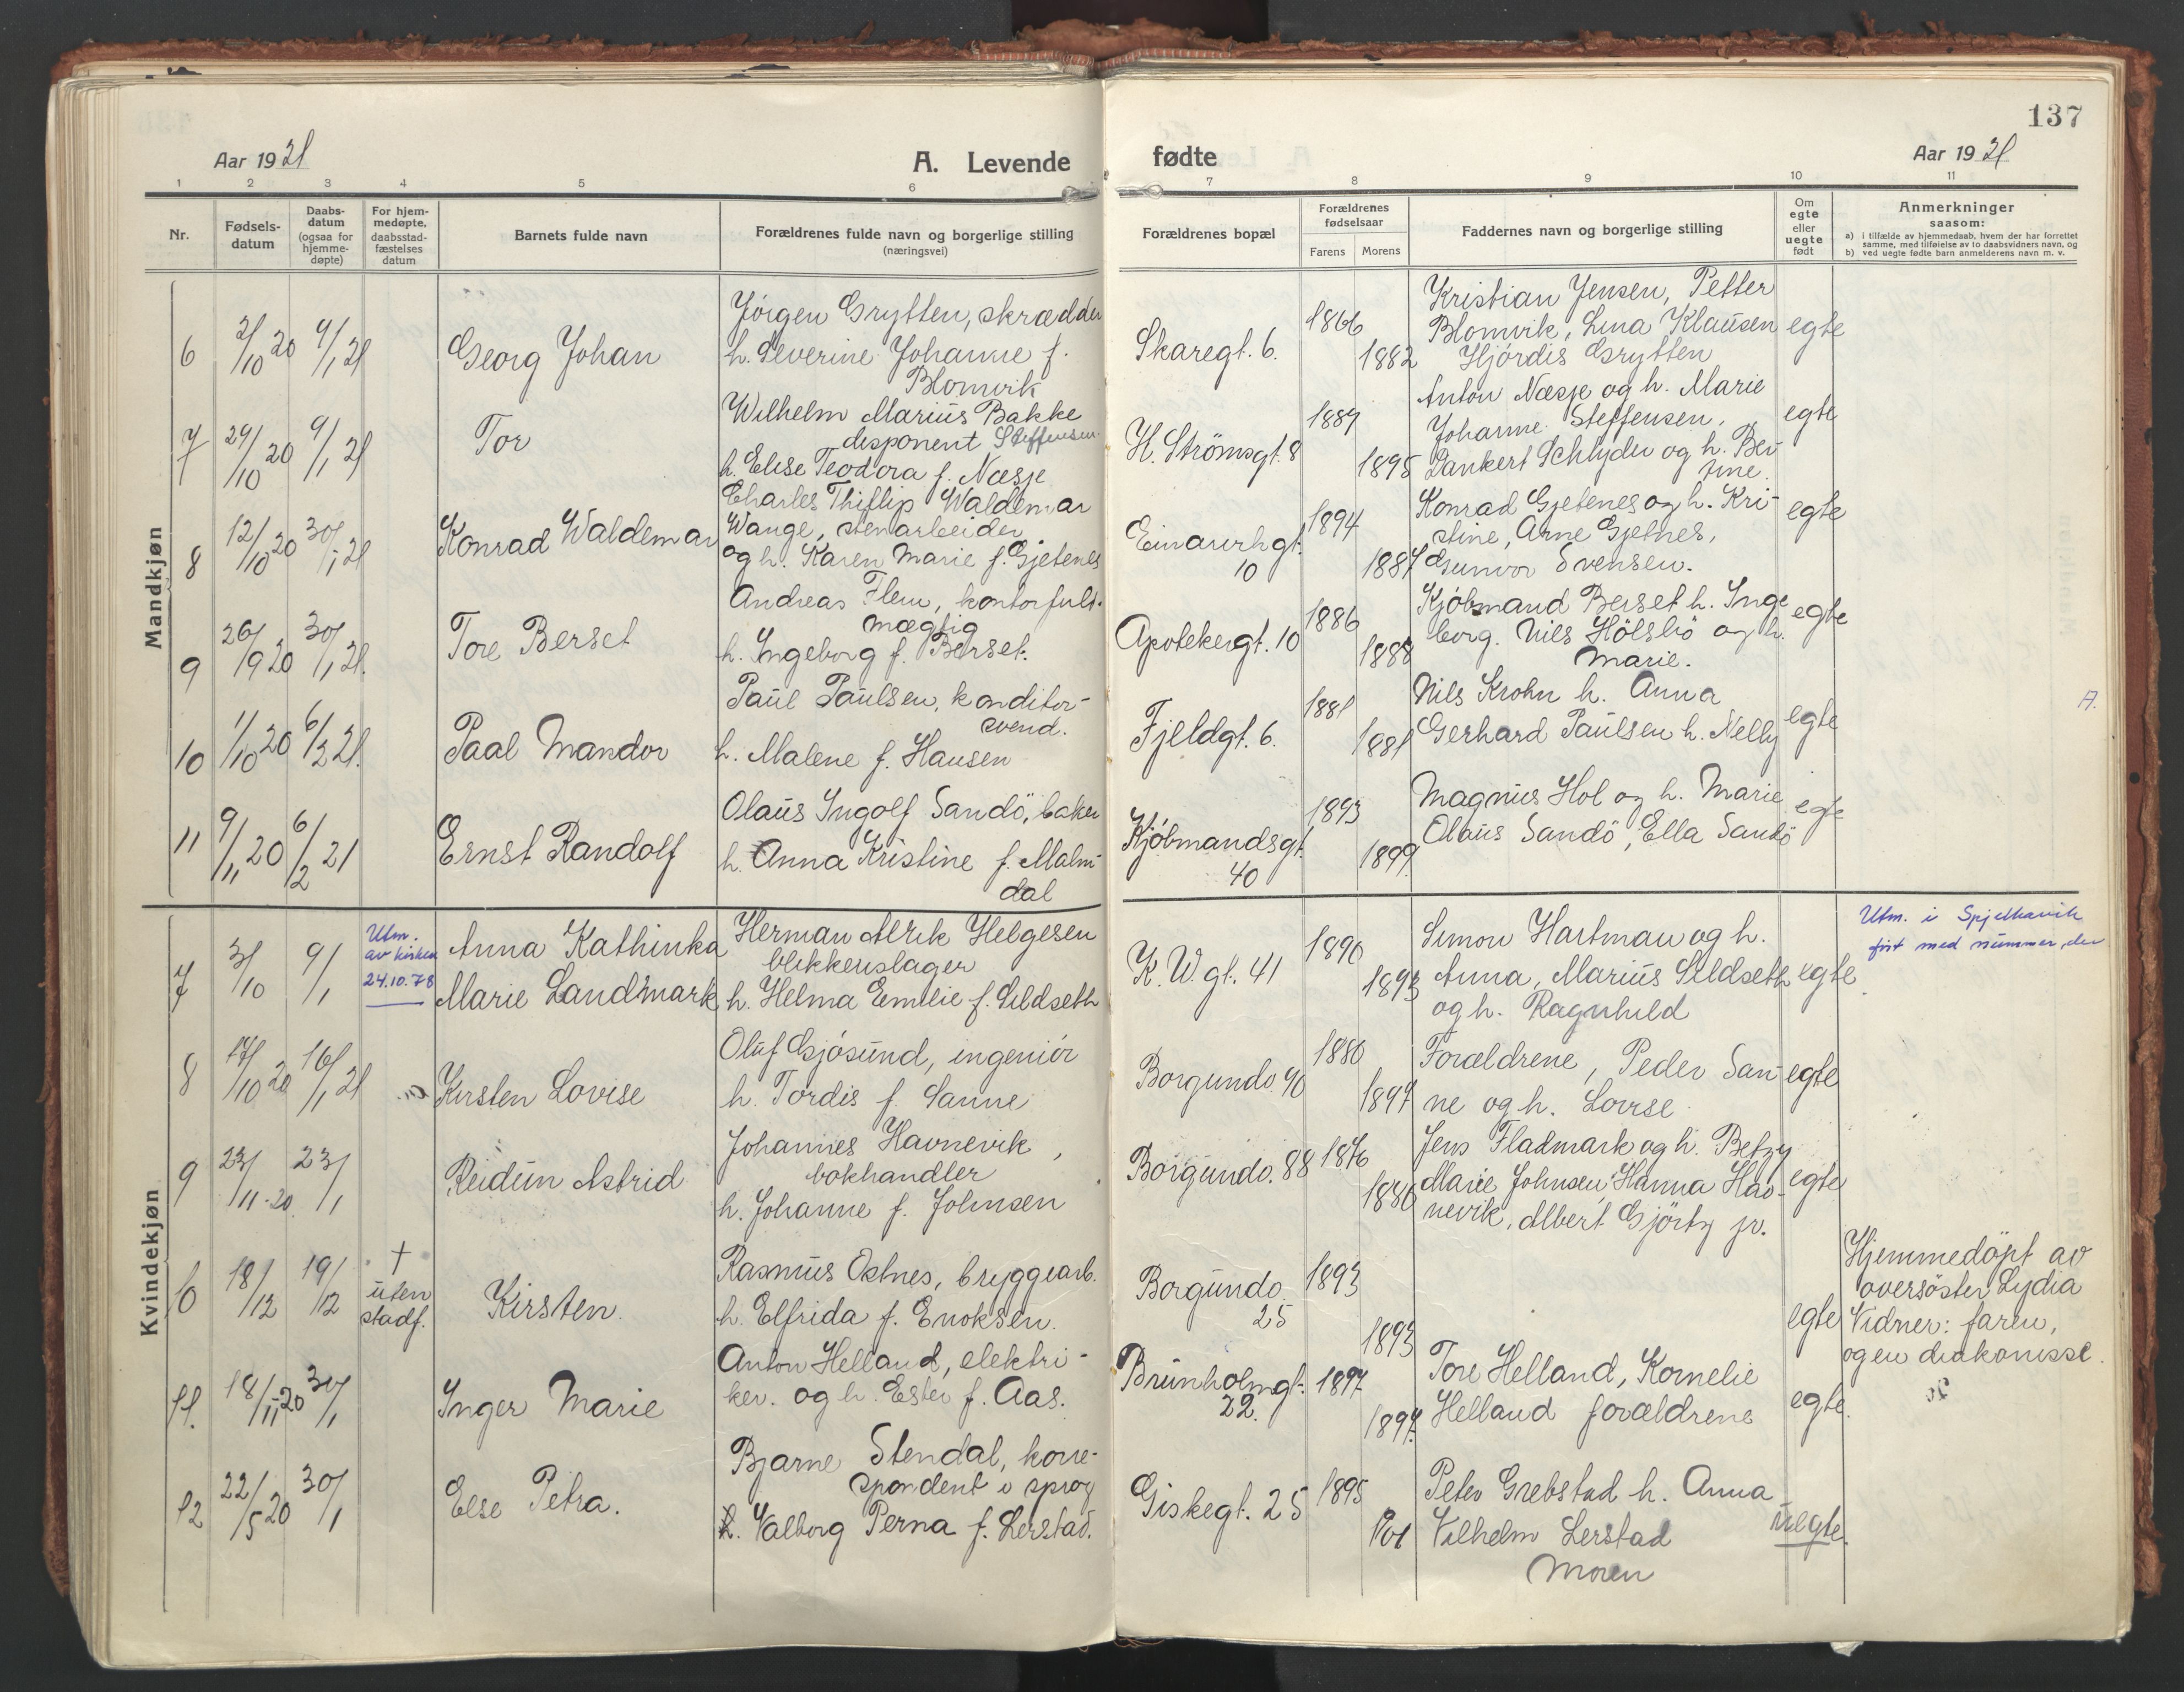 137
Aar 1921
A. Levende
fødte
Aar 1921
1 2 3 4 5 6 7 8 9 10 11
Nr.
Fødsels-
datum
Daabs-
datum
(ogsaa for
hjemme-
døpte)
For hjem-
medøpte,
daabsstad-
fæstelses
datum
Barnets fulde navn
Forældrenes fulde navn og borgerlige stilling
(næringsvei)
Forældrenes bopæl
Forældrenes
fødselsaar
Farens Morens
Faddernes navn og borgerlige stilling
Om
egte
eller
uegte
født
Anmerkninger
saasom:
a) i tilfælde av hjemmedaab, hvem der har forrettet
samme, med tilføielse av to daabsvidners navn, og
b) ved uegte fødte barn anmelderens navn m. v.
Mandkjøn
6
2/10 20
9/1 21
Georg Johan
Jörgen Grytten, skrædder
h. Severine Johanne f.
Blomvik
Skaregt. 6.
1866
1882
Kristian Jensen, Petter
Blomvik, Lina Klausen
Hjördis Grytten
egte
7
29/10 20
9/1 21
Tor
Wilhelm Marius Bakke
disponent Steffensen
h. Elise Teodora f. Næsje
H. Strömsgt. 8
1889
1895
Anton Næsje og h. Marie
Johanne Steffensen,
Lankert Schlyder og h. Ber
tine.
egte
8
12/10 20
30/1 21
Konrad Waldemar
Charles Thiflip Waldemar
Wange, stenarbeider
og h. Karen Marie f. Gjetenes
Einarvrhgt.
10
1894
1887
Konrad Gjetenes og h. Kri-
stine, Arne Gjetnes,
Gunvor Svensen.
egte
9
26/9 20
30/1 21.
Tore Berset
Andreas Flem, kontorfuld-
mægtig
h. Ingeborg f. Berset.
Apotekergt. 10
1886
1888
Kjöbmand Berset h. Inge
borg. Nils Hölsbö og h.
Marie.
egte
10
1/10 20
6/2 21.
Paal Mandor
Paul Paulsen, konditor-
svend.
h. Malene f. Hansen
Fjeldgt. 6.
1881
1881
Nils Krohn h. Anna
Gerhard Paulsen h. Nelly
egte
A.
11
9/11 20
6/2 21
Ernst Randolf
Olaus Ingolf Sandö, baker
h. Anna Kristine f. Malm-
dal
Kjöbmandsgt.
40
1893
1899.
Magnus Hol og h. Marie
Olaus Sandö, Ella Sandö
egte
Kvindekjøn
7
3/10
9/1
Utm.
av kirken
24.10.78
Anna Kathinka
Marie Landmark
Herman Alrik Helgesen
blikkenslager
h. Helma Emilie f. Sildseth
K. W. gt. 41
1890
1893
Simon Hartman og h.
Anna, Marius Sildseth
og h. Ragnhild
egte
Utm. i Spjelkavik
født med nummer, der
8
17/10 20
16/1 21
Kirsten Lovise
Oluf Gjösund, ingeniör
h. Tordis f. Sanne
Borgundv. 40
1880
1897
Forældrene, Peder San-
ne og h. Lovise
egte
9
23/11-20.
23/1
Reidun Astrid
Johannes Havnevik,
bokhandler
h. Johanne f. Johnsen
Borgundv. 88
1876
1880
Jens Fladmark og h. Betzy
Marie Johnsen, Hanna Hav-
nevik, Albert Gjörtz jr.
egte
10
18/12
19/12
†
uten
stadf.
Kirsten.
Rasmus Ostnes, bryggearb.
h. Elfrida f. Enoksen.
Borgundv.
25
1893
1893
egte
Hjemmedöpt av
oversöster Lydia
Vidner: faren,
og en diakonisse.
11.
18/11-20
30/1
Inger Marie
Anton Helland, elektri-
ker. og h. Ester f. Aas.
Brunholmgt.
22.
1897
1897.
Tore Helland, Kornelie
Helland forældrene
egte.
12
22/5 20
30/1
Else Petra.
Bjarne Stendal, korre-
spondent i sprog
h. Valborg Perna f. Lerstad.
Giskegt. 25
1895
1901
Peter Grebstad h. Anna
Vilhelm Lerstad
Moren
uegte.